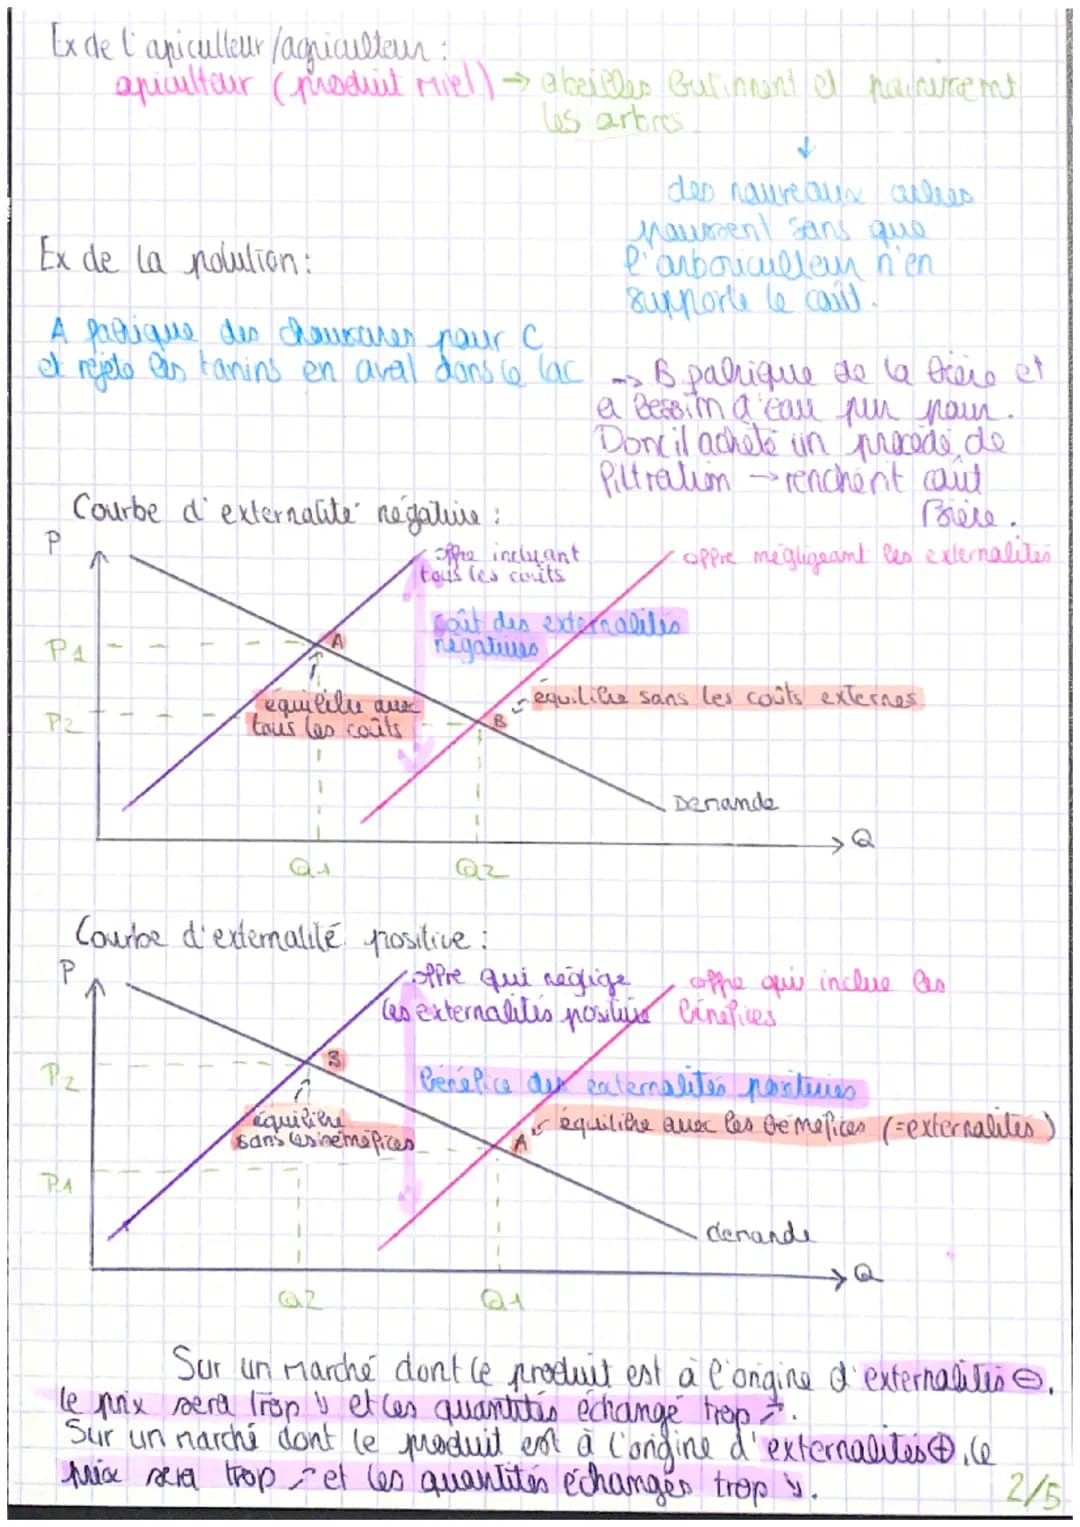 Ex de l'apiculteur/agriculteur :
apiculteur (produit miel) → abeilles butinnent et
les arbres
↓
des nouveaux arbres
poussent sans que
l'arboriculteur n'en
supporte le coût.
Ex de la polution :
A fabrique des chaussures pour C
et rejete les tanins en aval dans le lac
→ B fabrique de la bière et
a besoin d'eau pur pour.
Donc il achète un procédé de
filtration → renchérit coût
Bière.
Courbe d'externalité négative :
P
offre incluant
tous les coûts
offre négligeant les externalités
coût des externalités
négatives
P1
A
équilibre avec
tous les coûts
équilibre sans les coûts externes
P2
B
Demande
Q
Q1
Q2
Courbe d'externalité positive :
P
offre qui néglige
les externalités positives
offre qui inclue les
bénéfices
P2
B
Bénéfice des externalités positives
équilibre
sans les bénéfices
A
équilibre avec les bénéfices (=externalités)
P1
demande
Q
Q2
Q1
Sur un marché dont le produit est à l'origine d'externalités ⊖,
le prix sera trop ↘ et les quantités échangé trop ↗.
Sur un marché dont le produit est à l'origine d'externalités ⊕, le
prix sera trop ↗ et les quantités échangés trop ↘.
2/5